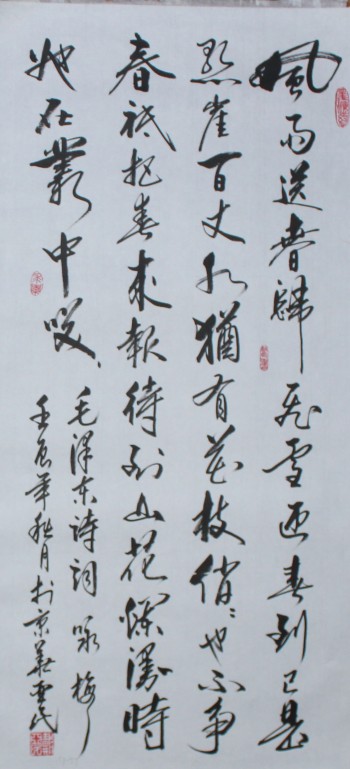 風雨送春歸飛雪迎春到已是
懸崖百丈冰猶有花枝俏俏也不爭
春祇把春來報待到山花爛漫時
她在叢中笑
毛泽东诗词 咏梅
壬辰年秋月于京华